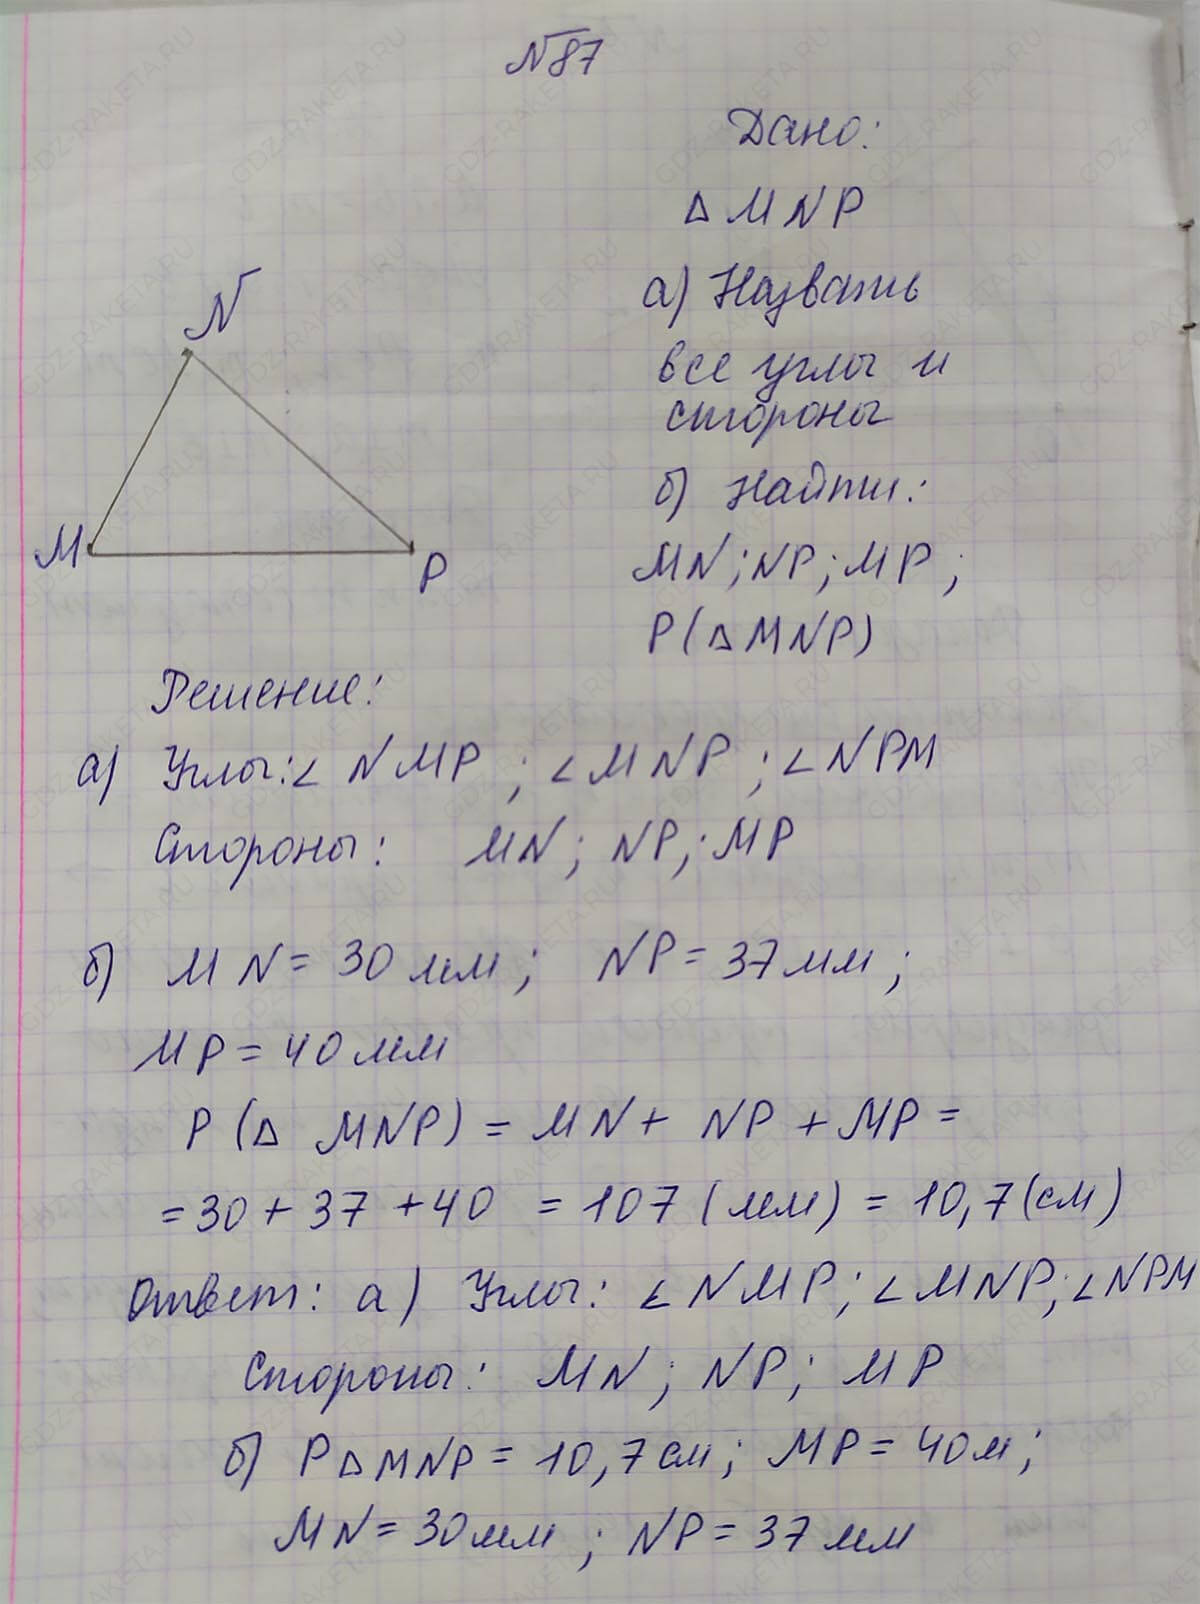 №87
Дано:
△MNP
а) Назвать
все углы и
стороны
б) Найти:
MN; NP; MP;
P(△MNP)
N
M
P
Решение:
а) Углы: ∠NMP; ∠MNP; ∠NPM
Стороны: MN; NP; MP
б) MN = 30 мм; NP = 37 мм;
MP = 40 мм
P(△ MNP) = MN + NP + MP =
= 30 + 37 + 40 = 107 (мм) = 10,7 (см)
Ответ: а) Углы: ∠NMP; ∠MNP; ∠NPM
Стороны: MN; NP; MP
б) P△MNP = 10,7 см; MP = 40м;
MN = 30мм; NP = 37 мм
GDZ-RAKETA.RU